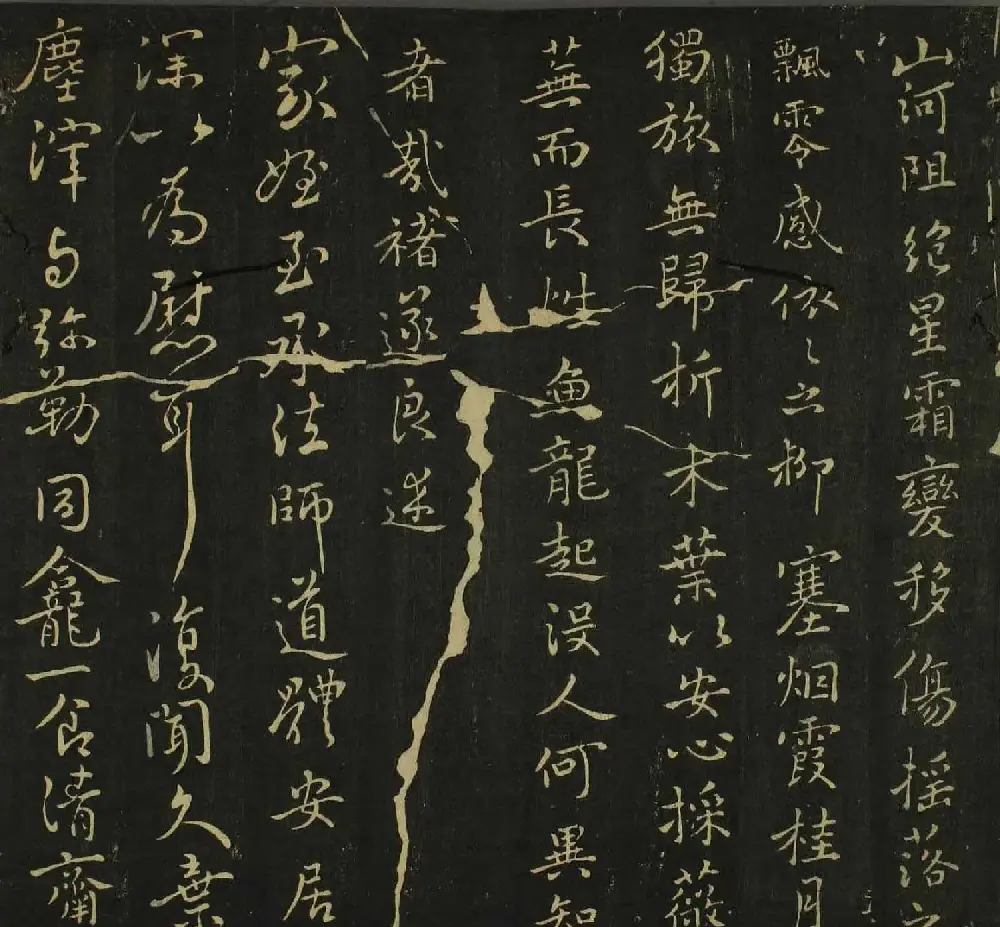 山河阻絶星霜變移傷揺落之
飄零感依〻之柳塞烟霞桂月
獨旅無歸折木葉以安心採薇
蕪而長性魚龍起没人何異知
者哉褚遂良述
家姪至承法師道體安居
深以為慰耳復聞久棄
塵滓与弥勒同龕一食清齋